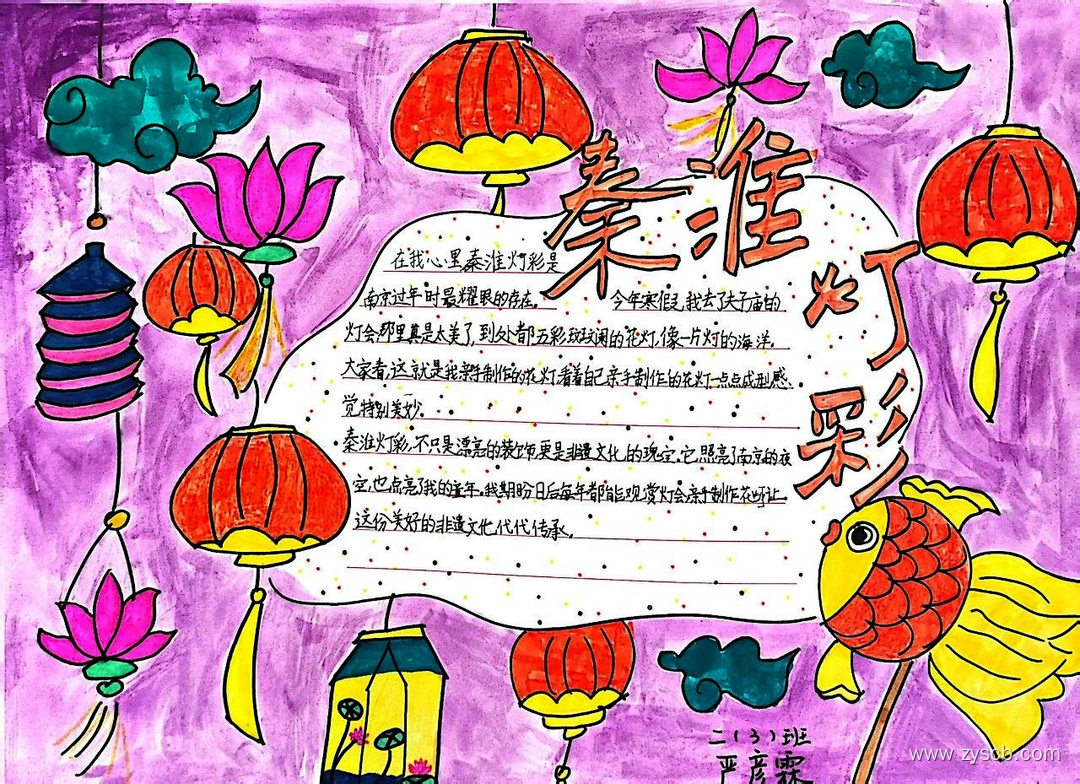 秦淮灯彩
在我心里秦淮灯彩是
南京过年时最耀眼的存在。 今年寒假,我去了夫子庙的
灯会那里真是太美了,到处都五彩斑斓的花灯,像一片灯的海洋,
大家看,这就是我亲手制作的花灯,看着自己亲手制作的花灯一点点成型感、
觉特别美妙.
秦淮灯彩,不只是漂亮的装饰更是非遗文化的瑰宝.它照亮了南京的夜
空,也点亮了我的童年.我期盼日后每年都能观赏灯会亲手制作花灯让
这份美好的非遗文化,代代传承.
二(3)班
严彦霖
www.zyscb.com